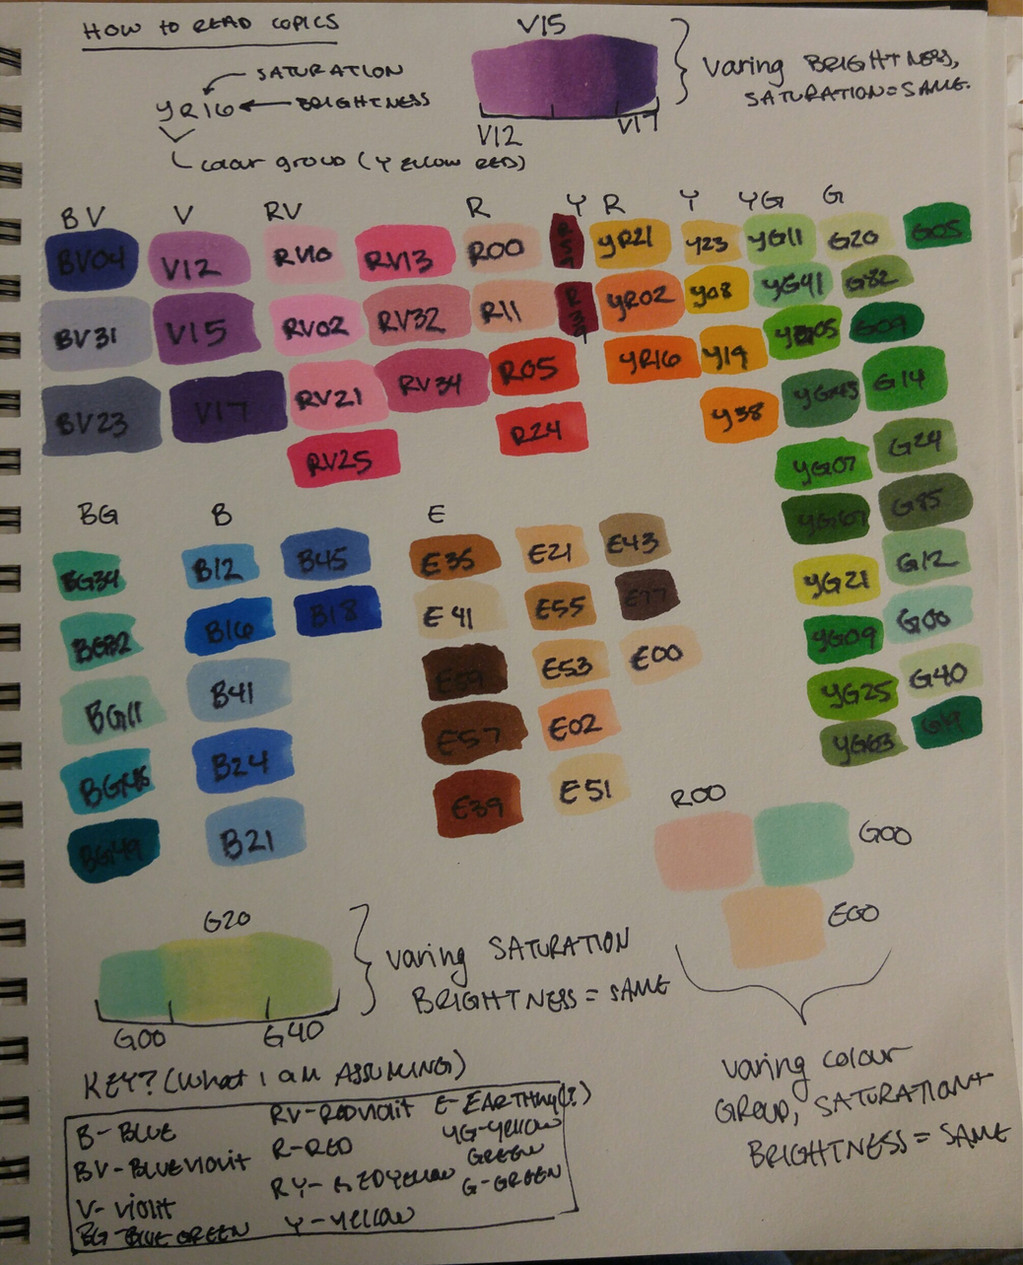 HOW TO READ COPICS
SATURATION
YR16 BRIGHTNESS
COLOUR GROUP (YELLOW RED)
V15
V12 V17
VARING BRIGHTNESS,
SATURATION=SAME.
BV V RV R YR Y YG G
BV04 V12 RV10 RV13 R00 R59 YR21 Y23 YG11 G20 G05
BV31 V15 RV02 RV32 R11 R39 YR02 Y08 YG41 G82
YR16 Y19 YG05 G09
BV23 V17 RV21 RV34 R05 Y38 YG45 G14
RV25 R24 YG07 G24
YG67 G85
YG21 G12
YG09 G00
YG25 G40
YG63 G19
BG B E
BG34 B12 B45 E35 E21 E43
BG32 B16 B18 E41 E55 E77
BG11 B41 E59 E53 E00
BG45 B24 E57 E02
BG49 B21 E39 E51
R00
G00
E00
G20
G00 G40
VARING SATURATION
BRIGHTNESS=SAME
VARING COLOUR
GROUP, SATURATION+
BRIGHTNESS=SAME
KEY? (WHAT I AM ASSUMING)
B-BLUE
BV-BLUE VIOLIT
V-VIOLIT
BG-BLUE GREEN
RV-RED VIOLIT
R-RED
RY-REDYELLOW
Y-YELLOW
E-EARTHNY(?)
YG-YELLOW
GREEN
G-GREEN